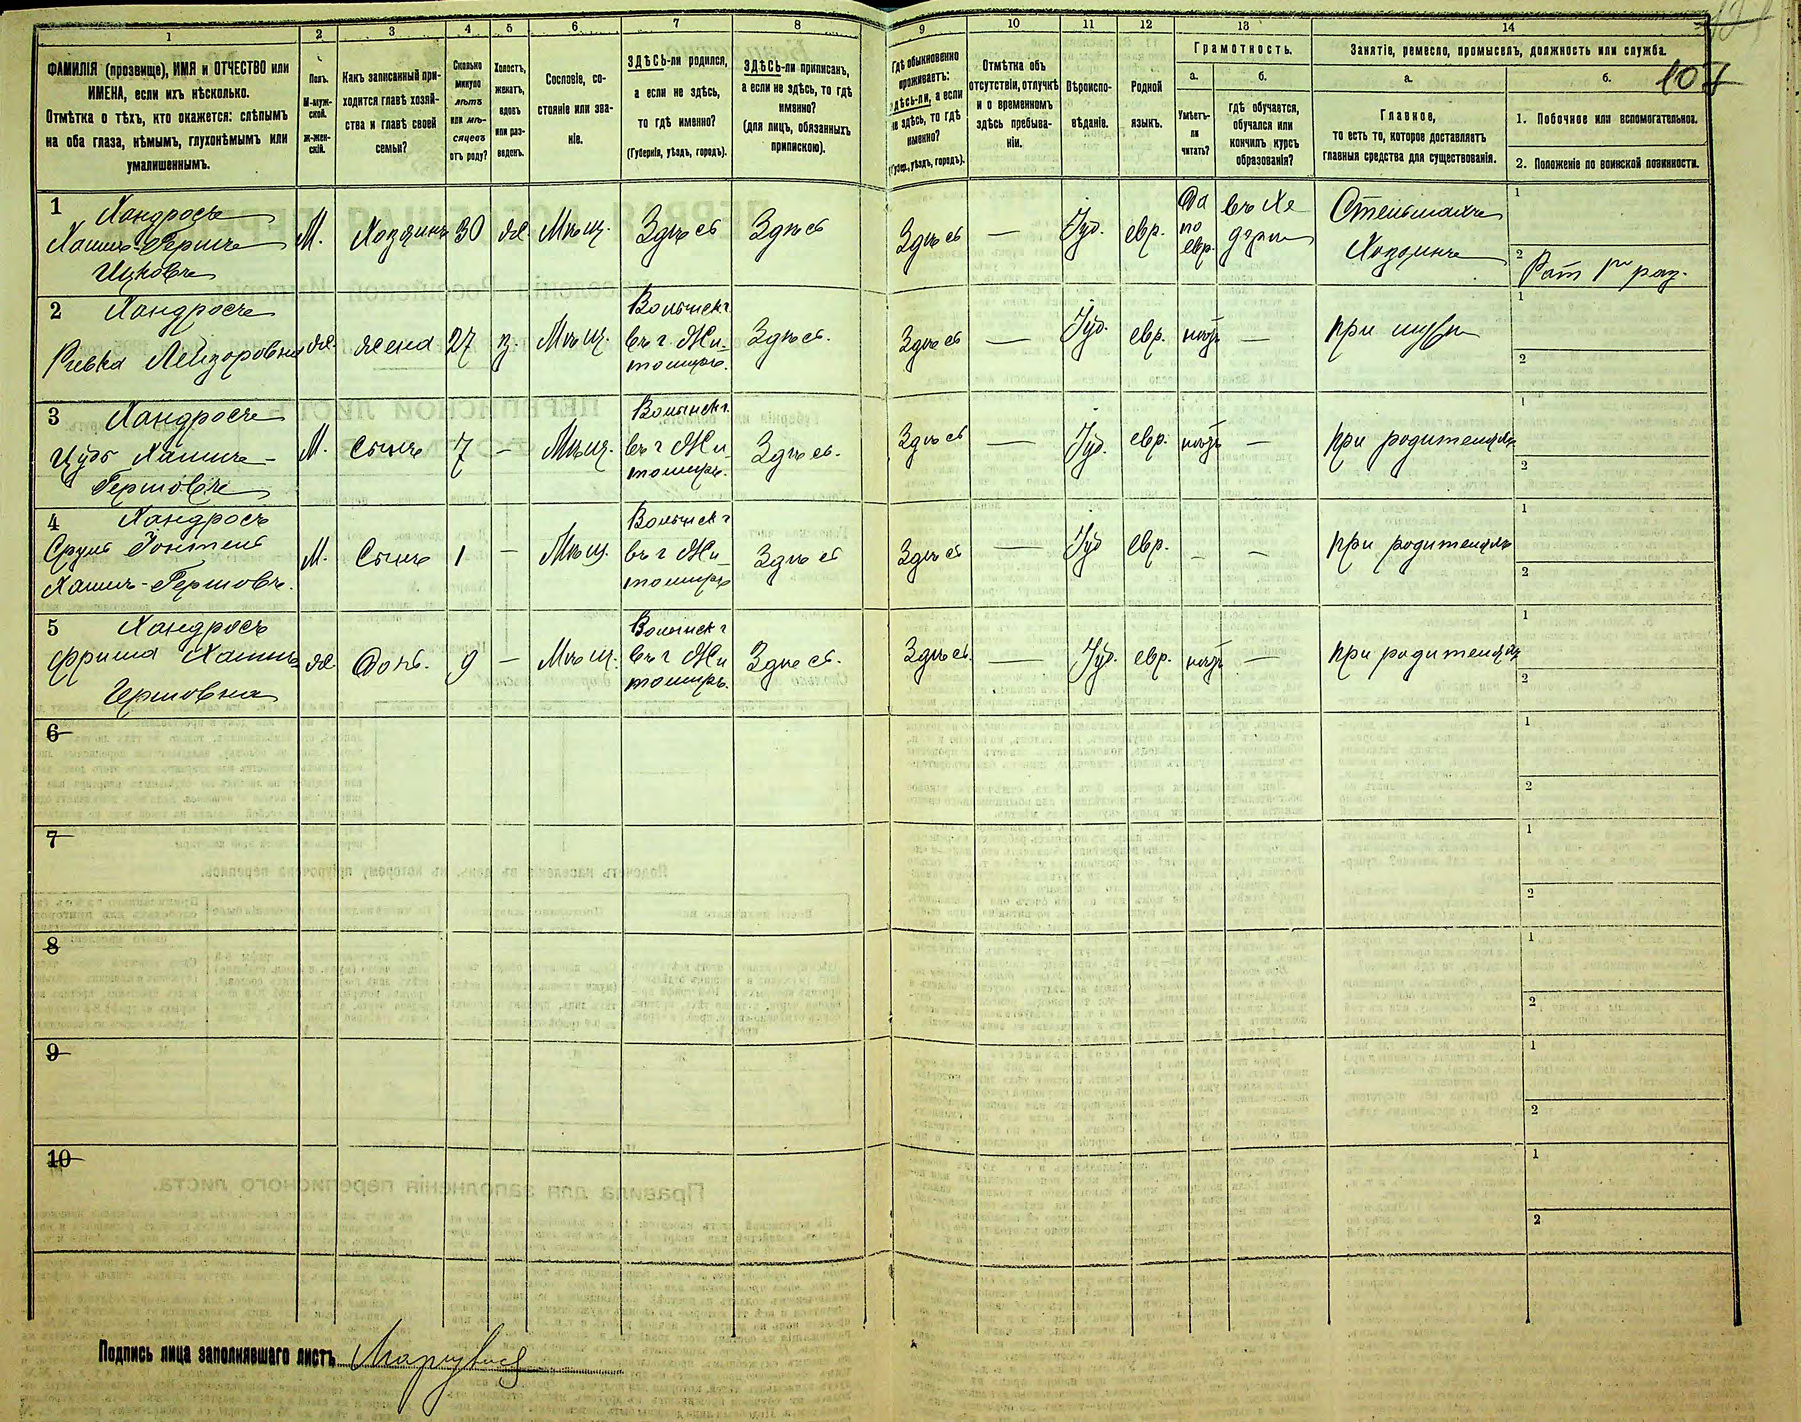 107
1 2 3 4 5 6 7 8 9 10 11 12 13 14
ФАМИЛІЯ (прозвище), ИМЯ и ОТЧЕСТВО или
ИМЕНА, если ихъ нѣсколько.
Отмѣтка о тѣхъ, кто окажется: слѣпымъ
на оба глаза, нѣмымъ, глухонѣмымъ или
умалишеннымъ.
Полъ.
М-муж-
ской.
ж-жен-
скій.
Какъ записанный при-
ходится главѣ хозяй-
ства и главѣ своей
семьи?
Сколько
минуло
лѣтъ
или мѣ-
сяцевъ
отъ роду?
Холостъ,
женатъ,
вдовъ
или раз-
веденъ.
Сословіе, со-
стояніе или зва-
ніе.
ЗДѢСЬ-ли родился,
а если не здѣсь,
то гдѣ именно?
(Губернія, уѣздъ, городъ).
ЗДѢСЬ-ли приписанъ,
а если не здѣсь, то гдѣ
именно?
(для лицъ, обязанныхъ
припискою).
Гдѣ обыкновенно
проживаетъ:
здѣсь-ли, а если
не здѣсь, то гдѣ
именно?
(Губер., уѣздъ, городъ).
Отмѣтка объ
отсутствіи, отлучкѣ
и о временномъ
здѣсь пребыва-
ніи.
Вѣроиспо-
вѣданіе.
Родной
языкъ.
Грамотность.
а.
Умѣетъ-
ли
читать?
б.
гдѣ обучается,
обучался или
кончилъ курсъ
образованія?
Занятіе, ремесло, промыселъ, должность или служба.
а.
Главное,
то есть то, которое доставляетъ
главныя средства для существованія.
б.
1. Побочное или вспомогательное.
2. Положеніе по воинской повинности.
1 Хандросъ
Хаимъ-Гершъ
Ицковъ
М. Хозяинъ 30 ж Мѣщ. Здѣсь Здѣсь Здѣсь — Іуд. евр.
Да
по
евр.
въ Хе
дерѣ
Стельмахъ
Хозяинъ
1
2 Рат 1го раз.
2 Хандросъ
Ривка Лейзоровна
ж. жена 27 з. Мѣщ.
Волынск г
въ г Жи-
томирѣ.
Здѣсь. Здѣсь — Іуд. евр. нѣтъ — при мужѣ
1
2
3 Хандросъ
Цудь Хаимъ-
Гершовъ
М. Сынъ 7 — Мѣщ.
Волынск г.
въ г Жи-
томирѣ.
Здѣсь. Здѣсь — Іуд. евр. нѣтъ — при родителяхъ
1
2
4 Хандросъ
Сруль Зонтель
Хаимъ-Гершовъ.
М. Сынъ 1 — Мѣщ.
Волынск г
въ г Жи-
томирѣ
Здѣсь Здѣсь — Іуд евр. — — при родителяхъ
1
2
5 Хандросъ
Фрима Хаимъ-
Гершовна
ж. Дочь. 9 — Мѣщ.
Волынск г
въ г Жи
томирѣ.
Здѣсь. Здѣсь. — Іуд. евр. нѣтъ — при родителяхъ
1
2
6
1
2
7
1
2
8
1
2
9
1
2
10
1
2
Подпись лица заполнявшаго листъ